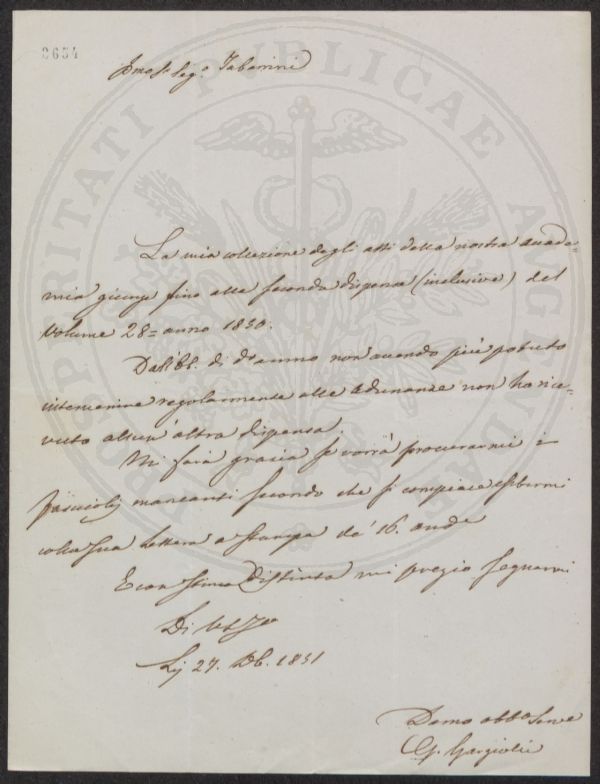 2654
PROSPERITATI PUBLICAE AUGENDAE
Sigr. Segro. Tabarrini
La mia collezione degli atti della nostra accade=
mia giunge fino alla seconda dispensa (inclusive) del
Volume 28= anno 1850.
Dall' di do anno non avendo più potuto
intervenire regolarmente alle Adunanze non ho rice=
vuto alcun' altra dispensa.
Mi farà grazia se vorrà procurarmi i
fascicoli mancanti secondo che si compiace esibirmi
colla sua lettera a stampa de' 16. and.e
E con stima Distinta mi pregio segnarmi
Di
Lì 27. Db. 1851
Demo obbo Serve
G. Gargiolli